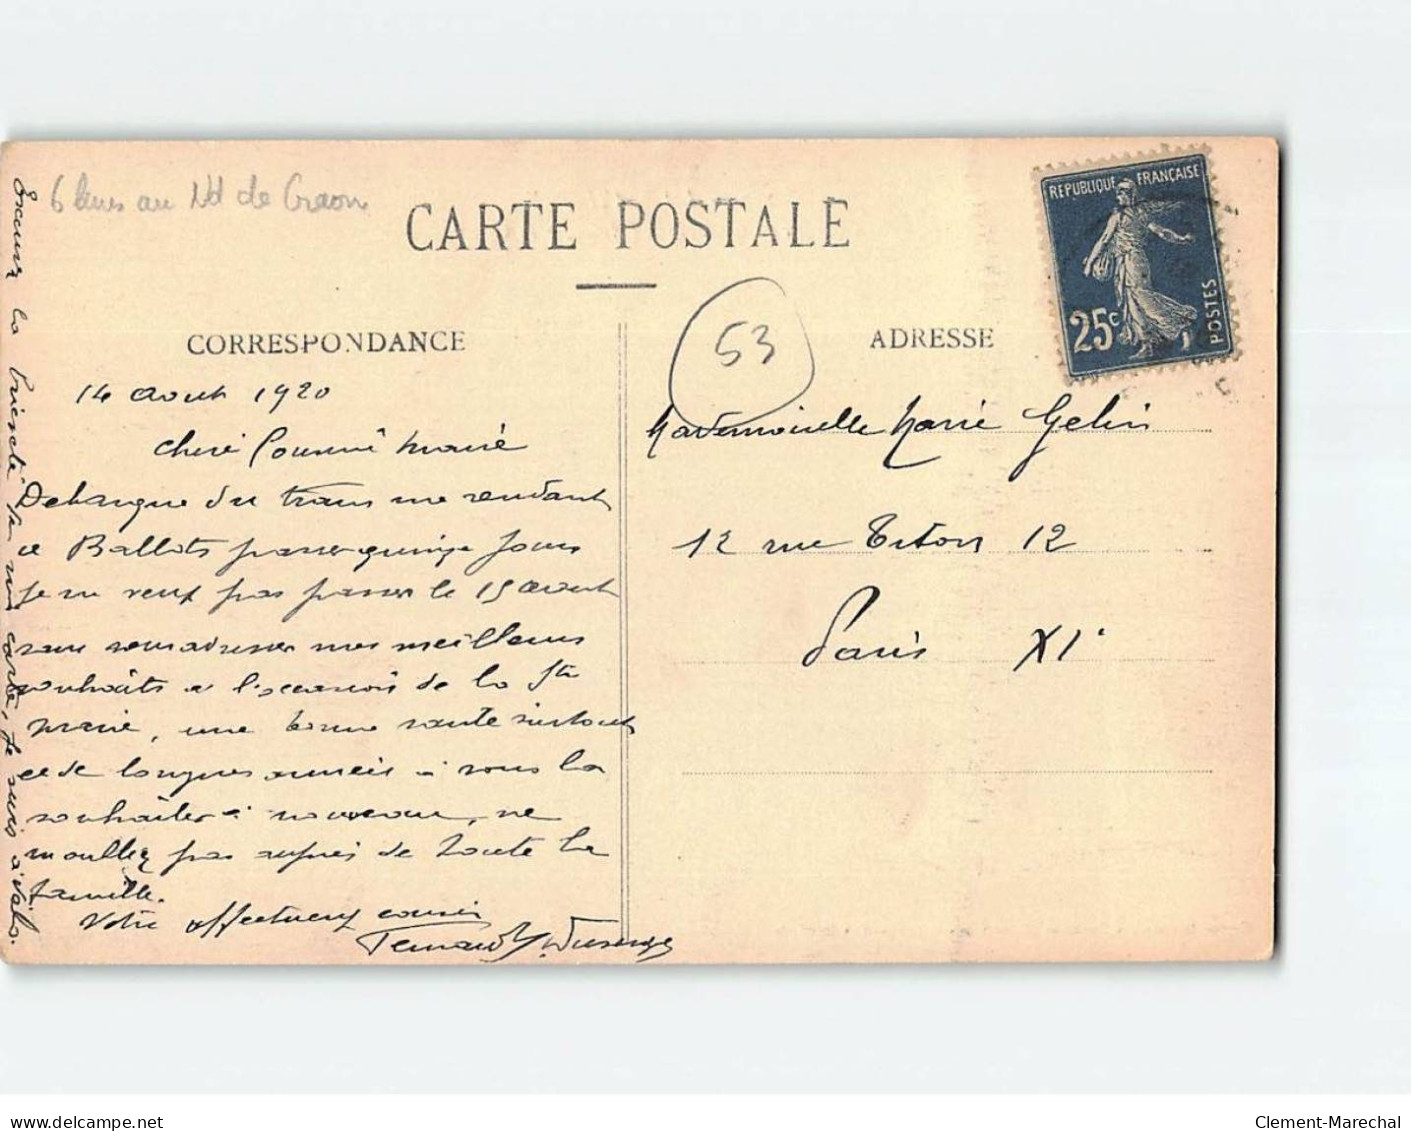 6 kms au Nd de Craon
CARTE POSTALE
REPUBLIQUE FRANÇAISE
25c
POSTES
53
CORRESPONDANCE
ADRESSE
14 Aout 1920
Chere Cousine Marie
Debarque du train me rendant
a Ballots passer quinze jours
je ne veux pas passer le 15 aout
sans vous adresser mes meilleurs
souhaits a l'occasion de la Ste
Marie, une bonne santé surtout
et de longues années à vous la
souhaiter à nouveau, ne
m'oubliez pas auprès de toute la
famille.
Votre affectueux cousin
Fernand
Excusez la de ma carte, je suis à
Mademoiselle Marie Gelin
12 rue Titon 12
Paris XIe
delcampe.net
Clement-Marechal